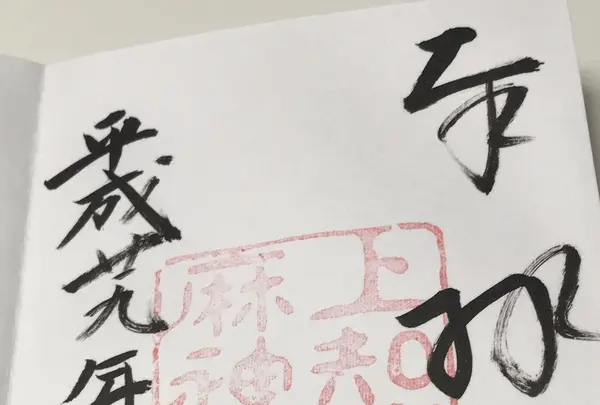 奉拝
上知
麻神
平成廿九年